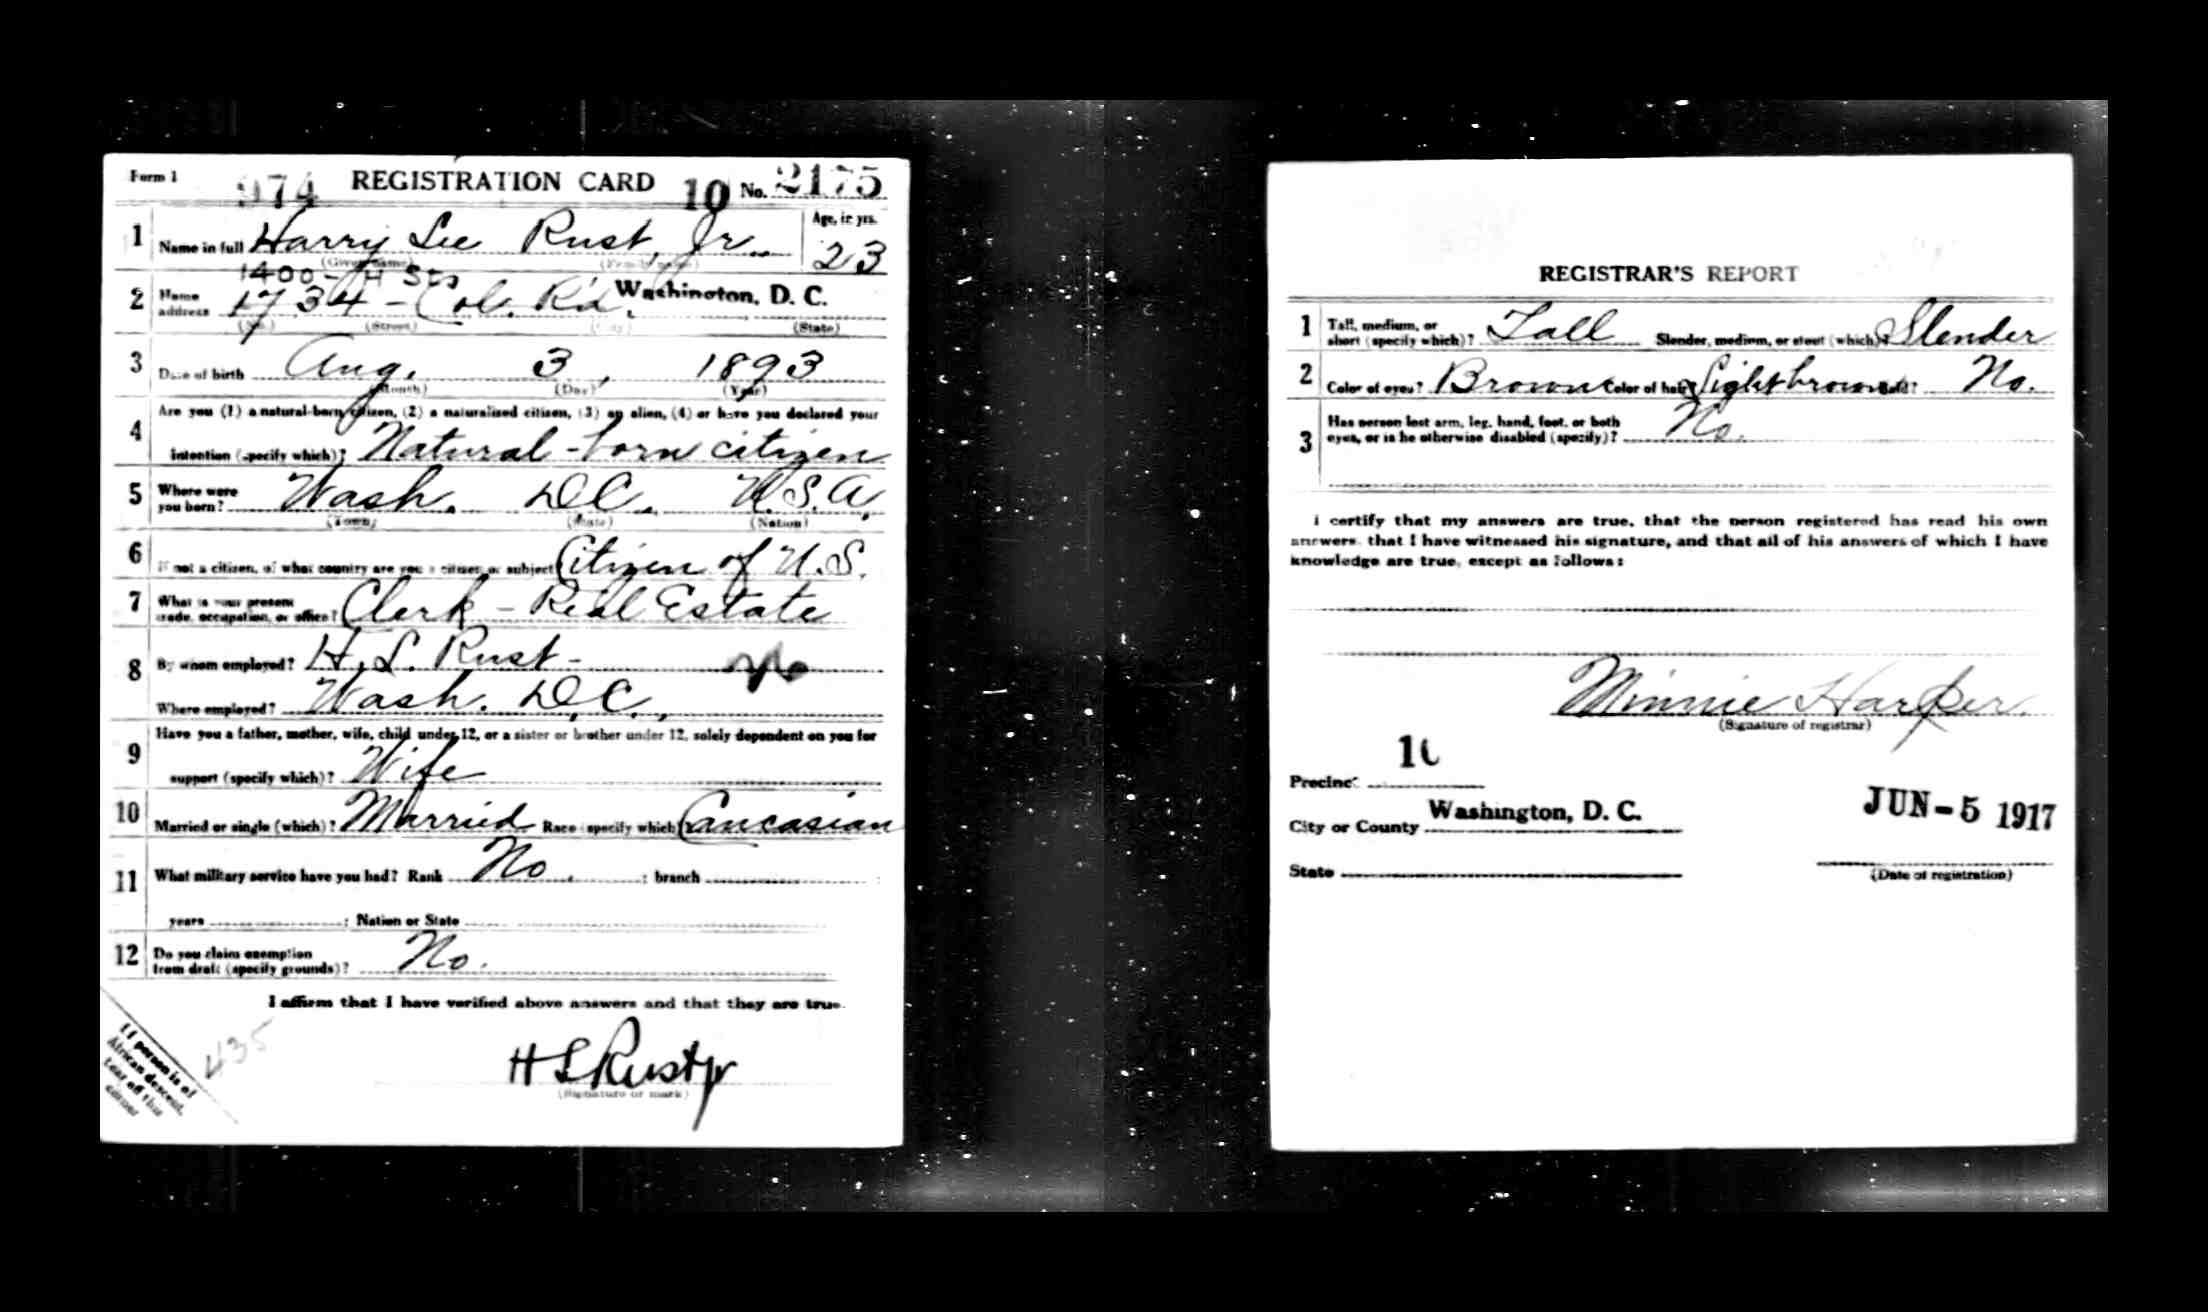 Form 1 974 REGISTRATION CARD 10 No. 2175
1 Name in full Harry Lee Rust, Jr. Age, in yrs. 23
(Given name) (Family name)
1400 - H St
2 Home address 1734 - Col. Rd. Washington, D. C.
(No.) (Street) (City) (State)
3 Date of birth Aug. 3, 1893
(Month) (Day) (Year)
4 Are you (1) a natural-born citizen, (2) a naturalized citizen, (3) an alien, (4) or have you declared your
intention (specify which)? Natural-born citizen
5 Where were you born? Wash. D.C. U.S.A.
(Town) (State) (Nation)
6 If not a citizen, of what country are you a citizen or subject Citizen of U.S.
7 What is your present trade, occupation, or office? Clerk - Real Estate
8 By whom employed? H. L. Rust - No
Where employed? Wash. D.C.
9 Have you a father, mother, wife, child under 12, or a sister or brother under 12, solely dependent on you for
support (specify which)? Wife
10 Married or single (which)? Married Race (specify which) Caucasian
11 What military service have you had? Rank No. ; branch
years ; Nation or State
12 Do you claim exemption from draft (specify grounds)? No.
I affirm that I have verified above answers and that they are true.
H L Rust jr
(Signature or mark)
If person is of
African descent,
tear off this
corner
435
REGISTRAR'S REPORT
1 Tall, medium, or short (specify which)? Tall Slender, medium, or stout (which)? Slender
2 Color of eyes? Brown Color of hair? Light brown Bald? No.
3 Has person lost arm, leg, hand, foot, or both
eyes, or is he otherwise disabled (specify)? No.
I certify that my answers are true, that the person registered has read his own
answers, that I have witnessed his signature, and that all of his answers of which I have
knowledge are true, except as follows:
Minnie Harper
(Signature of registrar)
Precinct 10
City or County Washington, D. C.
JUN - 5 1917
State
(Date of registration)